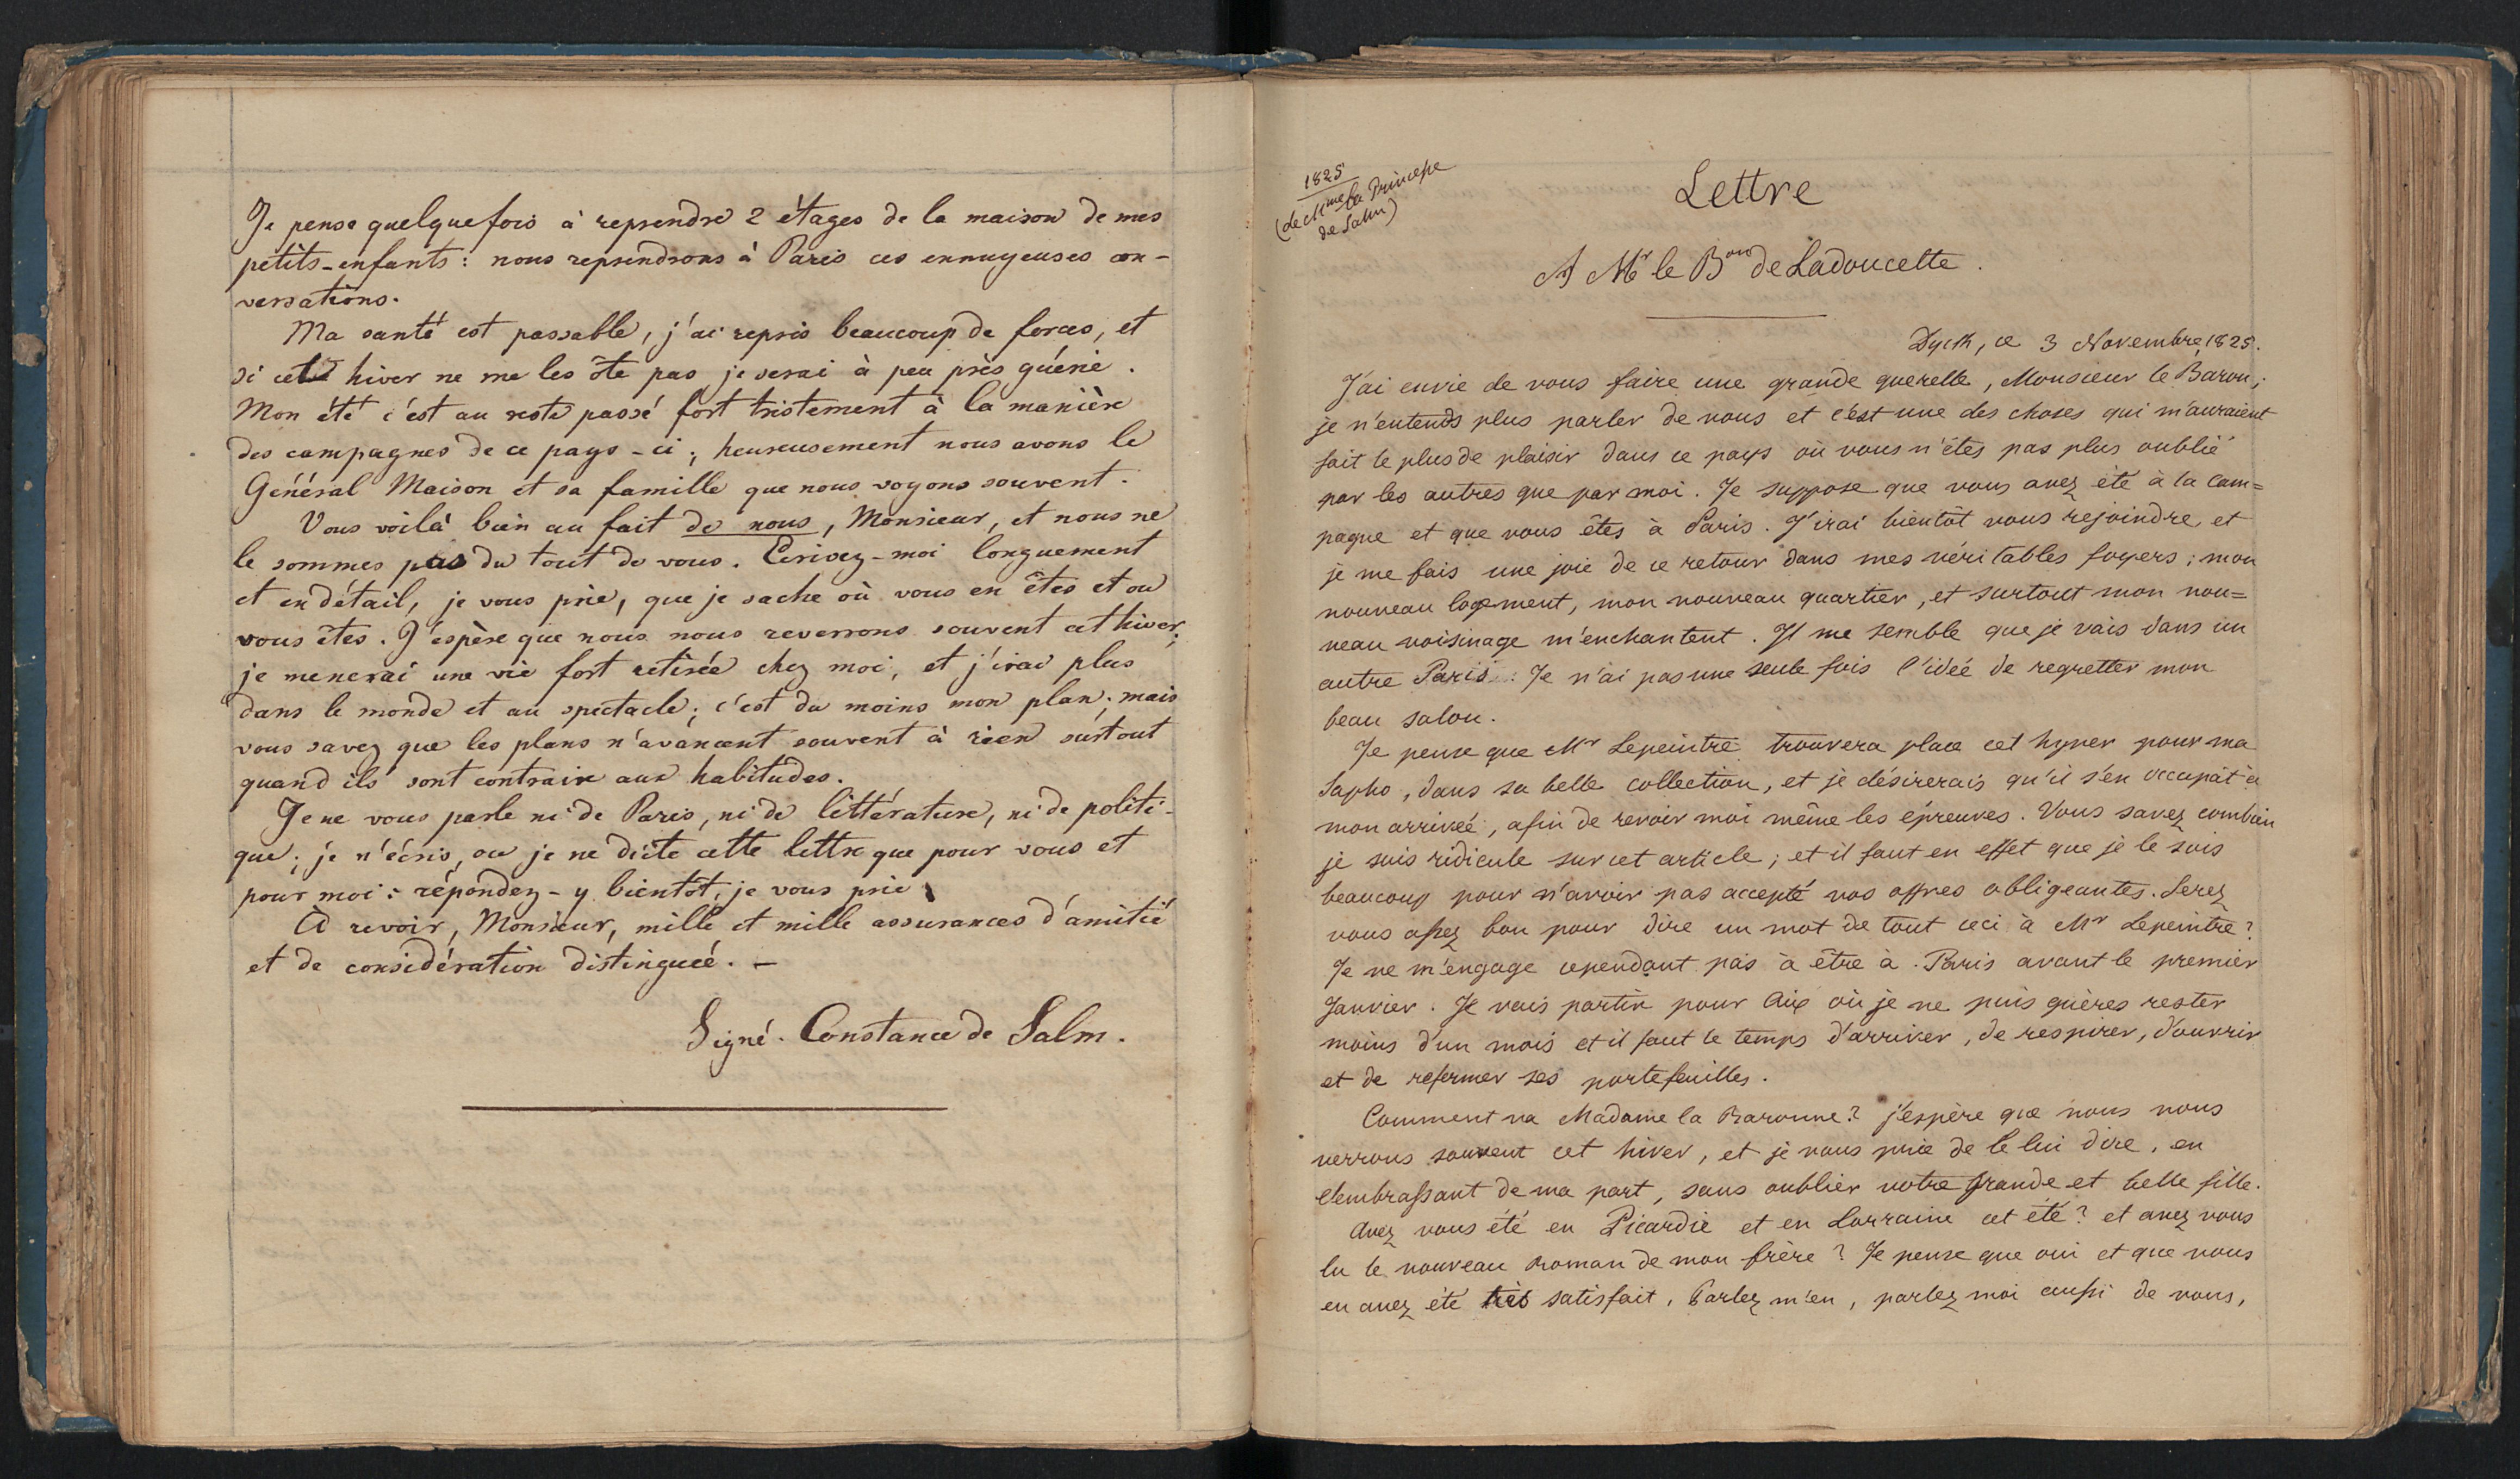 Je pense quelquefois à reprendre 2 étages de la maison de mes
petits-enfants : nous reprendrons à Paris ces ennuyeuses con-
versations.
Ma santé est passable, j'ai repris beaucoup de forces, et
si cet hiver ne me les ôte pas, je serai à peu près guérie.
Mon été s'est au reste passé fort tristement à la manière
des campagnes de ce pays-ci ; heureusement nous avons le
Général Maison et sa famille que nous voyons souvent.
Vous voilà bien au fait de nous, Monsieur, et nous ne
le sommes pas du tout de vous. Ecrivez-moi longuement
et en détail, je vous prie, que je sache où vous en êtes et où
vous êtes. J'espère que nous nous reverrons souvent cet hiver;
je menerai une vie fort retirée chez moi, et j'irai plus
dans le monde et au spectacle ; c'est du moins mon plan ; mais
vous savez que les plans n'avancent souvent à rien surtout
quand ils sont contraire aux habitudes.
Je ne vous parle ni de Paris, ni de littérature, ni de politi-
que ; je n'écris, ou je ne dicte cette lettre que pour vous et
pour moi : répondez-y bientôt, je vous prie.
A revoir, Monsieur, mille et mille assurances d'amitié
et de considération distinguée. —
Signé. Constance de Salm.
1825
(de Mme la Princesse
de Salm)
Lettre
A Mr le Bon de Ladoucette.
Dyck, ce 3 Novembre 1825.
J'ai envie de vous faire une grande querelle, Monsieur le Baron,
je n'entends plus parler de vous et c'est une des choses qui m'auraient
fait le plus de plaisir dans ce pays où vous n'êtes pas plus oublié
par les autres que par moi. Je suppose que vous avez été à la cam=
pagne et que vous êtes à Paris. J'irai bientôt vous rejoindre, et
je me fais une joie de ce retour dans mes véritables foyers ; mon
nouveau logement, mon nouveau quartier, et surtout mon nou=
veau voisinage m'enchantent. Il me semble que je vais dans un
autre Paris : Je n'ai pas une seule fois l'idée de regretter mon
beau salon.
Je pense que Mr Lepeintre trouvera place cet hyver pour ma
Sapho, dans sa belle collection, et je désirerais qu'il s'en occupât à
mon arrivée, afin de revoir moi même les épreuves. Vous savez combien
je suis ridicule sur cet article ; et il faut en effet que je le sois
beaucoup pour n'avoir pas accepté vos offres obligeantes. Serez
vous assez bon pour dire un mot de tout ceci à Mr Lepeintre ?
Je ne m'engage cependant pas à être à Paris avant le premier
Janvier. Je vais partir pour Aix où je ne puis guères rester
moins d'un mois et il faut le temps d'arriver, de respirer, d'ouvrir
et de refermer ses portefeuilles.
Comment va Madame la Baronne ? j'espère que nous nous
verrons souvent cet hiver, et je vous prie de le lui dire, en
l'embrassant de ma part, sans oublier votre grande et belle fille.
Avez vous été en Picardie et en Lorraine cet été ? et avez vous
lu le nouveau roman de mon frère ? Je pense que oui et que vous
en avez été très satisfait. Parlez m'en, parlez moi aussi de vous,